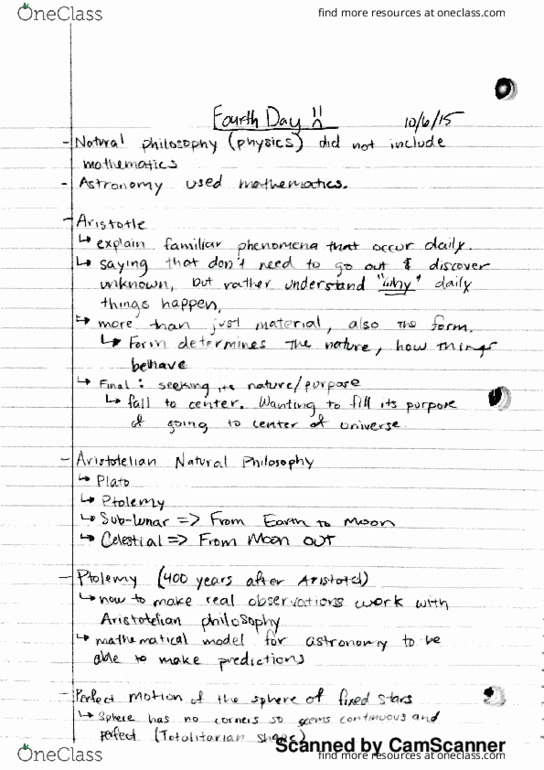 OneClass
find more resources at oneclass.com
Fourth Day !!
10/6/15
- Natural philosophy (physics) did not include
mathematics
- Astronomy used mathematics.
- Aristotle
↳ explain familiar phenomena that occur daily.
↳ saying that don't need to go out & discover
unknown, but rather understand "why" daily
things happen,
↳ more than just material, also the form.
↳ Form determines the nature, how things
behave
↳ Final: seeking its nature/purpose
↳ fall to center. Wanting to fill its purpose
of going to center of universe
- Aristotelian Natural Philosophy
↳ Plato
↳ Ptolemy
↳ Sub-lunar => From Earth to Moon
↳ Celestial => From Moon out
- Ptolemy (400 years after Aristotel)
↳ how to make real observations work with
Aristotelian philosophy
↳ mathematical model for astronomy to be
able to make predictions
- Perfect motion of the sphere of fixed stars
↳ Sphere has no corners so seems continuous and
perfect (Totalitarian shape)
Scanned by CamScanner
OneClass
find more resources at oneclass.com